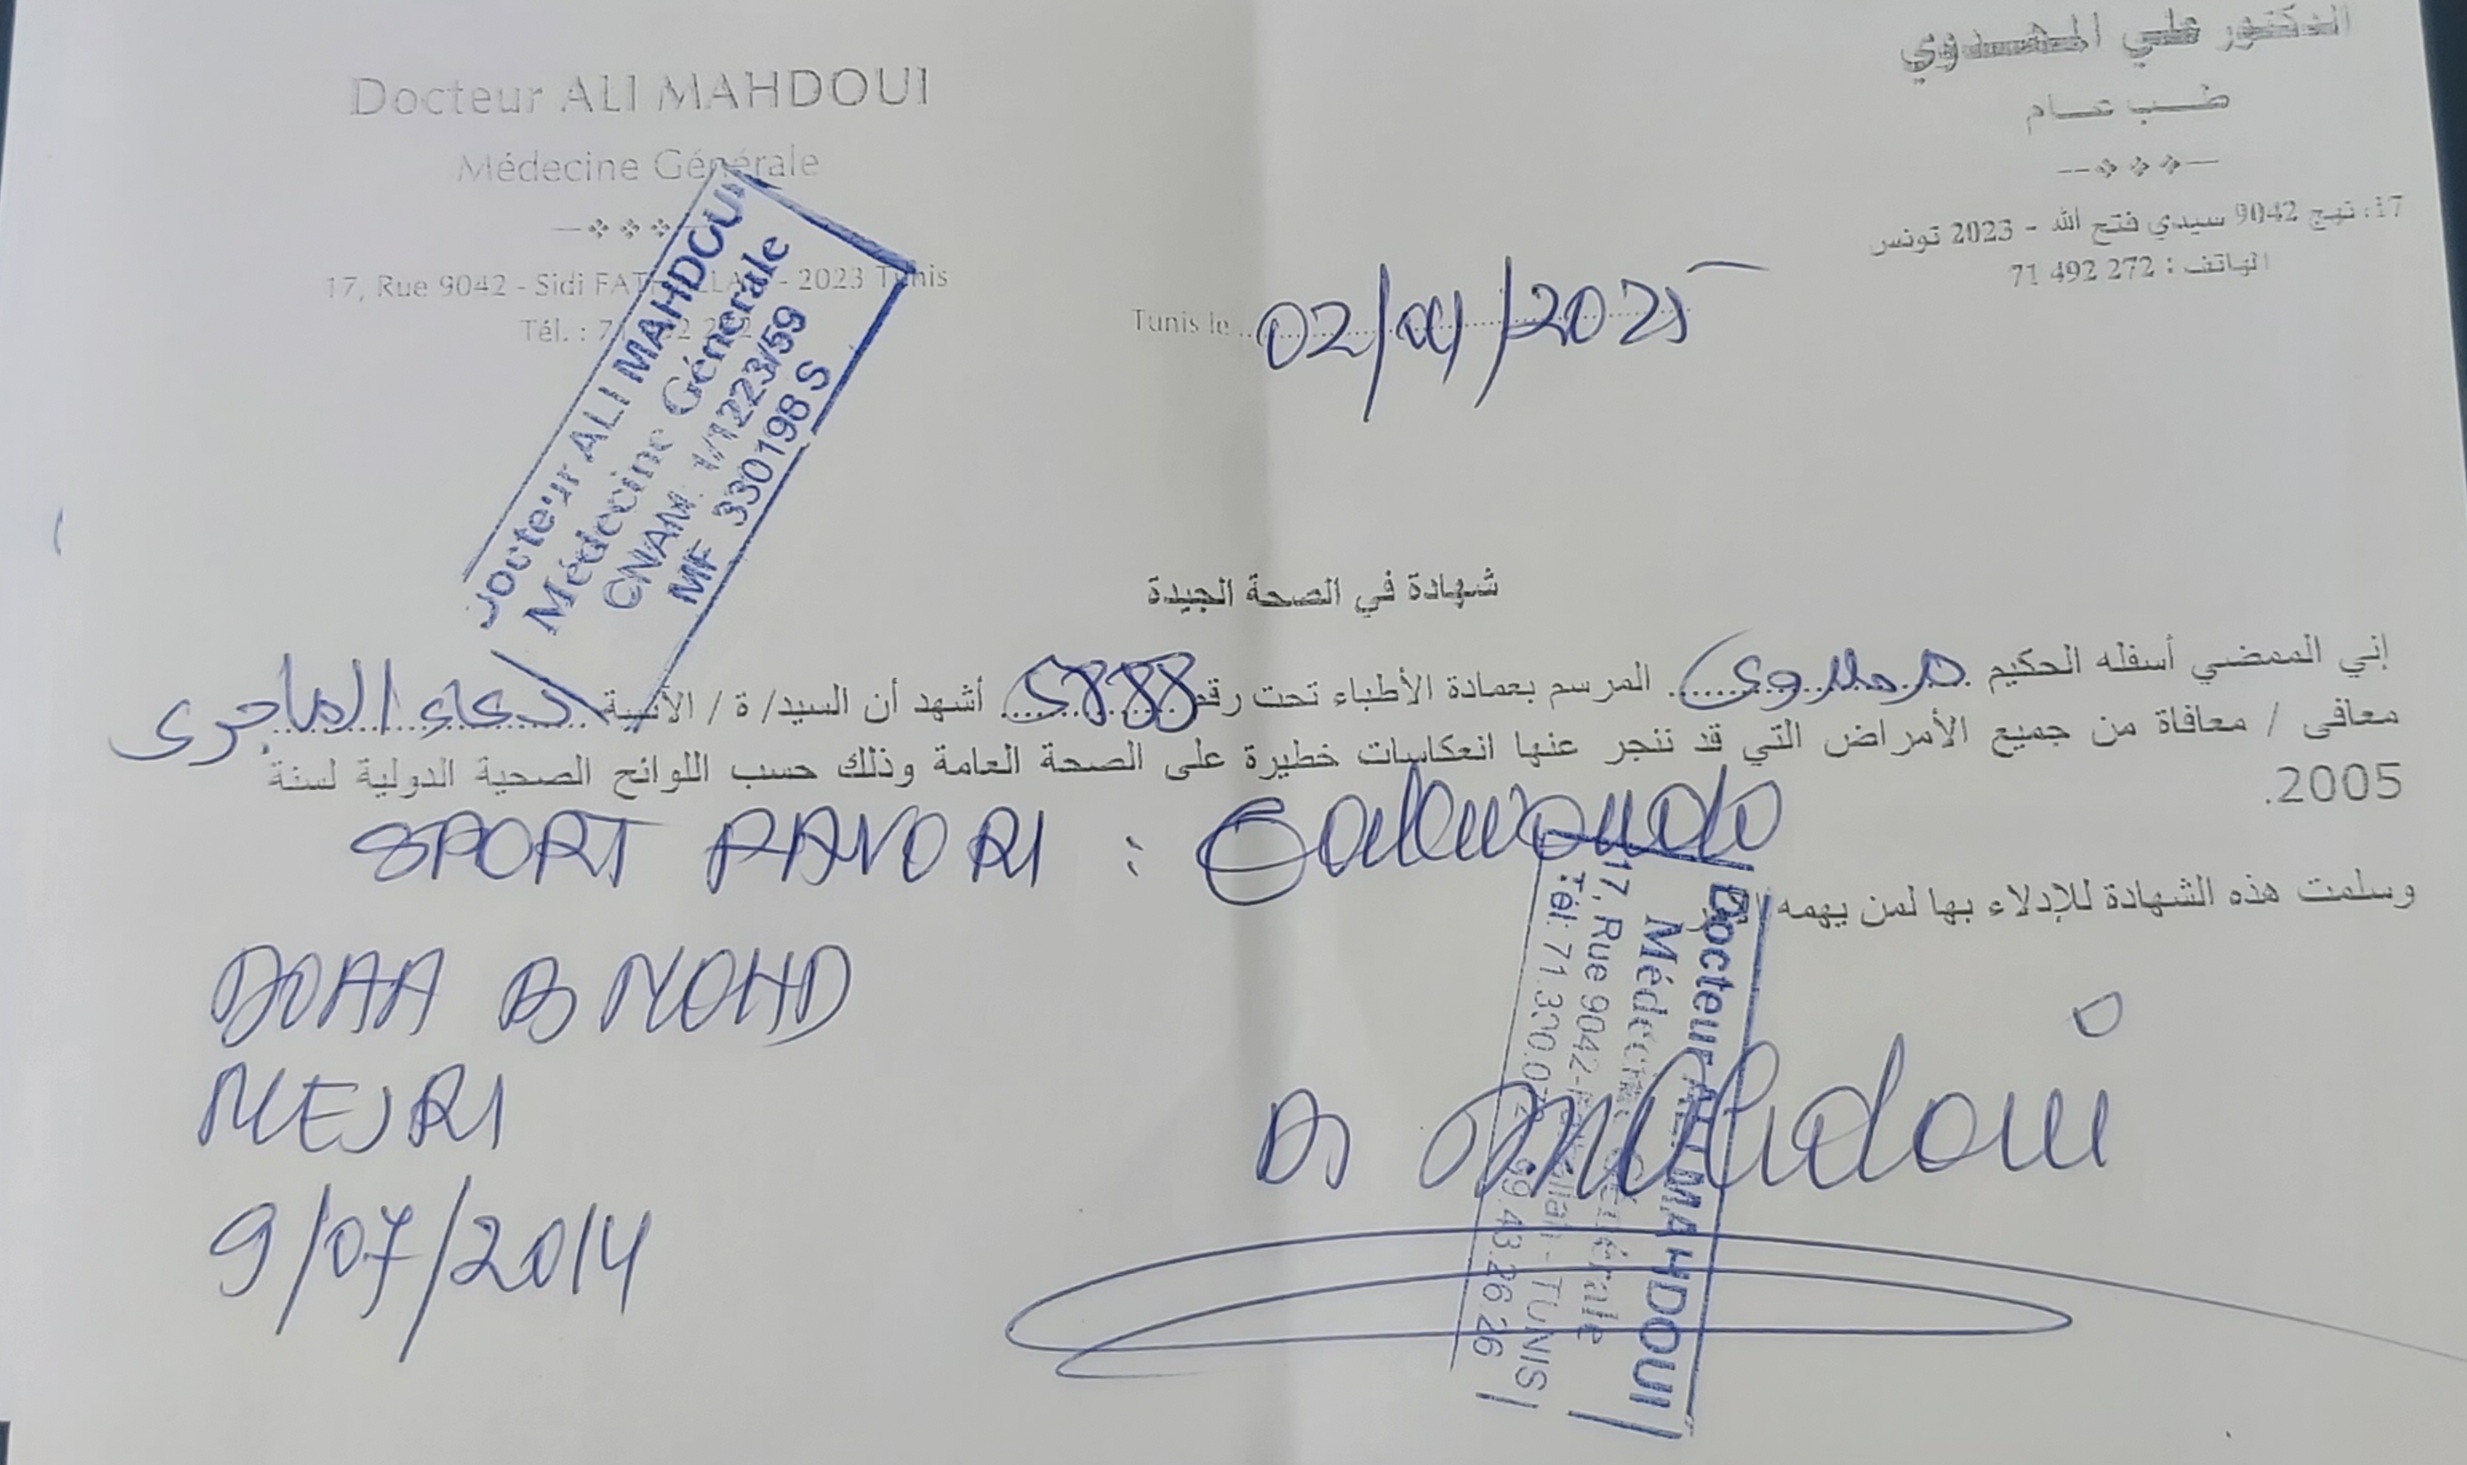 Docteur ALI MAHDOUI
Médecine Générale
17, Rue 9042 - Sidi - 2023 Tunis
Tél. :
الدكتور علي المهدوي
طب عام
17، نهج 9042 سيدي فتح الله - 2023 تونس
الهاتف : 272 492 71
Tunis le 02/04/2025
Docteur ALI MAHDOUI
Médecine Génerale
CNAM 1/1223/59
MF 330198 S
شهادة في الصحة الجيدة
إني الممضي أسفله الحكيم مهدوي المرسم بعمادة الأطباء تحت رقم 5788 أشهد أن السيد/ ة / الآنسة دعاء الماجري
معافى / معافاة من جميع الأمراض التي قد تنجر عنها انعكاسات خطيرة على الصحة العامة وذلك حسب اللوائح الصحية الدولية لسنة
2005.
SPORT :
وسلمت هذه الشهادة للإدلاء بها لمن يهمه
DOAA B MOHD
MEJRI
9/07/2014
Dr Mahdoui
Docteur ALI MAHDOUI
Médecine Générale
17, Rue 9042 - TUNIS
Tél: 71.330.0 99.43.26.26